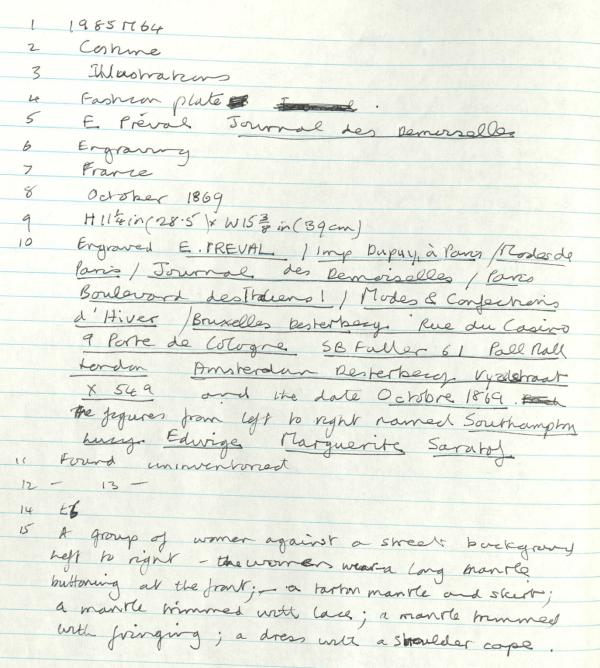 1 1985M64
2 Costume
3 Illustrations
4 Fashion plate .
5 E. Préval Journal des Demoiselles
6 Engraving
7 France
8 October 1869
9 H 11 1/4 in (28.5) x W 15 3/8 in (39cm)
10 Engraved E. PREVAL / Imp Dupuy, à Paris / Modes de
Paris / Journal des Demoiselles / Paris
Boulevard des Italiens 1 / Modes & Confections
d'Hiver / Bruxelles Desterbecq. Rue du Casino
9 Porte de Cologne SB Fuller 61 Pall Mall
London Amsterdam Desterbecq Vyzelstraat
X 549 and the date Octobre 1869.
The figures from left to right named Southampton
Lucy. Edwige Marguerite Saratof
11 Found uninventoried
12 - 13 -
14
15 A group of women against a street background
Left to right - the women wear a long mantle
buttoning at the front; - a tartan mantle and skirt;
a mantle trimmed with lace; a mantle trimmed
with fringing; a dress with a shoulder cape.